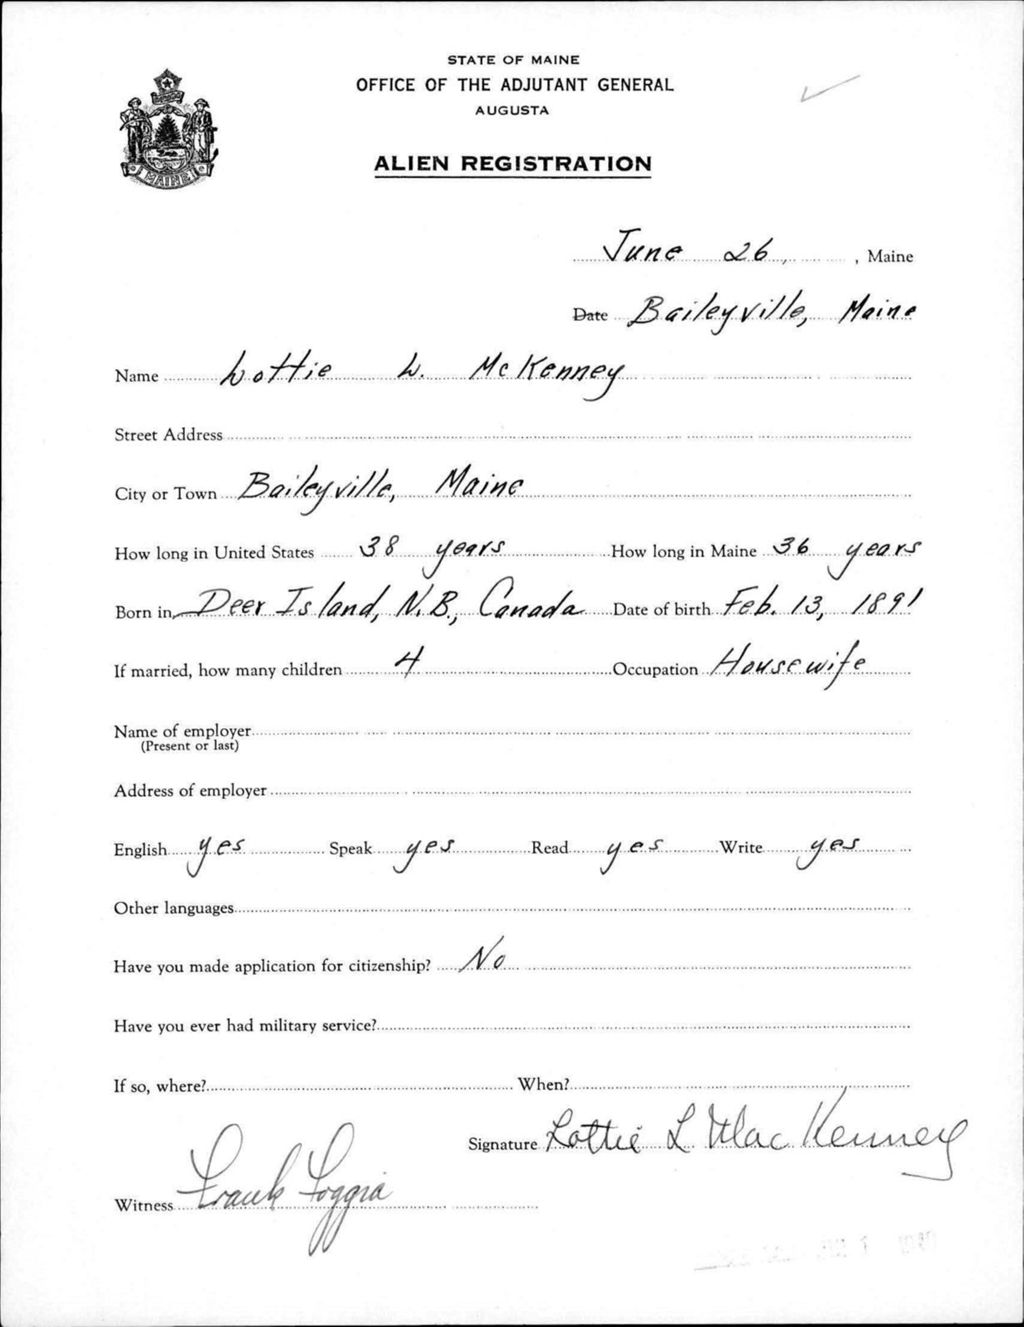 STATE OF MAINE
OFFICE OF THE ADJUTANT GENERAL
AUGUSTA
ALIEN REGISTRATION
MAINE
June 26, , Maine
Date Baileyville, Maine
Name Lottie L. McKenney
Street Address
City or Town Baileyville, Maine
How long in United States 38 years How long in Maine 36 years
Born in Deer Island, N.B., Canada Date of birth Feb. 13, 1891
If married, how many children 4 Occupation Housewife
Name of employer
(Present or last)
Address of employer
English yes Speak yes Read yes Write yes
Other languages
Have you made application for citizenship? No
Have you ever had military service?
If so, where? When?
Signature Lottie L MacKenney
Witness Frank Foggia